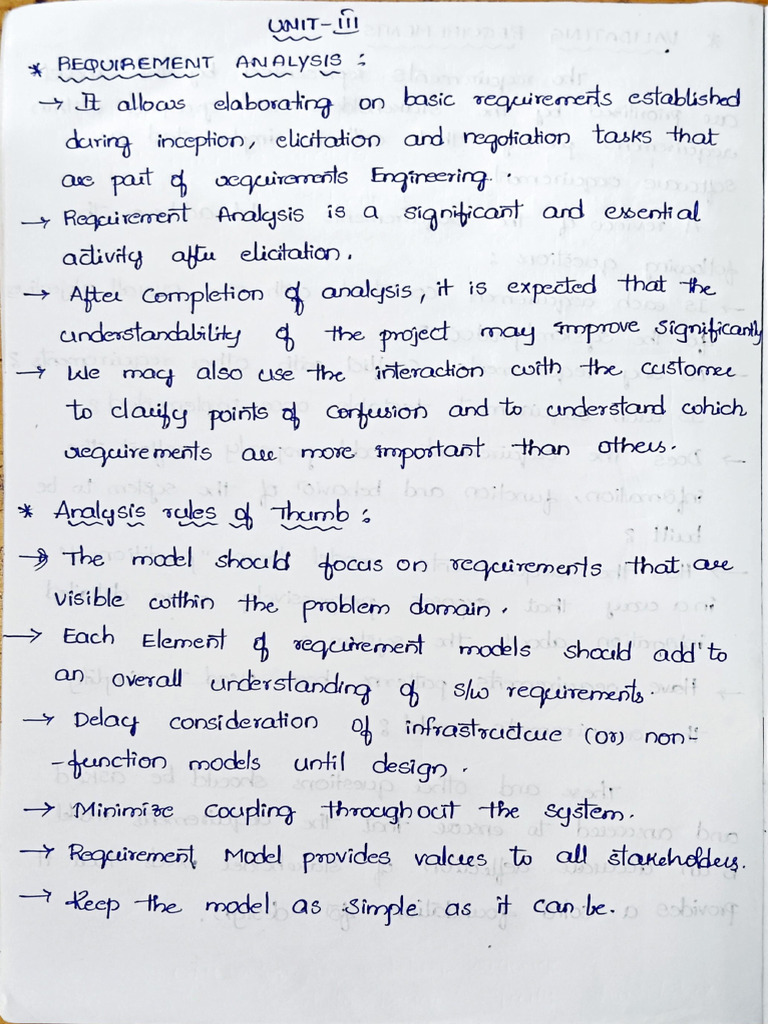 UNIT-III
* REQUIREMENT ANALYSIS :
→ It allows elaborating on basic requirements established
during inception, elicitation and negotiation tasks that
are part of requirements Engineering.
→ Requirement Analysis is a significant and essential
activity after elicitation.
→ After completion of analysis, it is expected that the
understandability of the project may improve significantly
→ We may also use the interaction with the customer
to clarify points of confusion and to understand which
requirements are more important than others.
* Analysis rules of Thumb :
→ The model should focus on requirements that are
visible within the problem domain.
→ Each Element of requirement models should add to
an overall understanding of s/w requirements.
→ Delay consideration of infrastructure (or) non-
-function models until design.
→ Minimize coupling throughout the system.
→ Requirement Model provides values to all stakeholders.
→ Keep the model as simple as it can be.